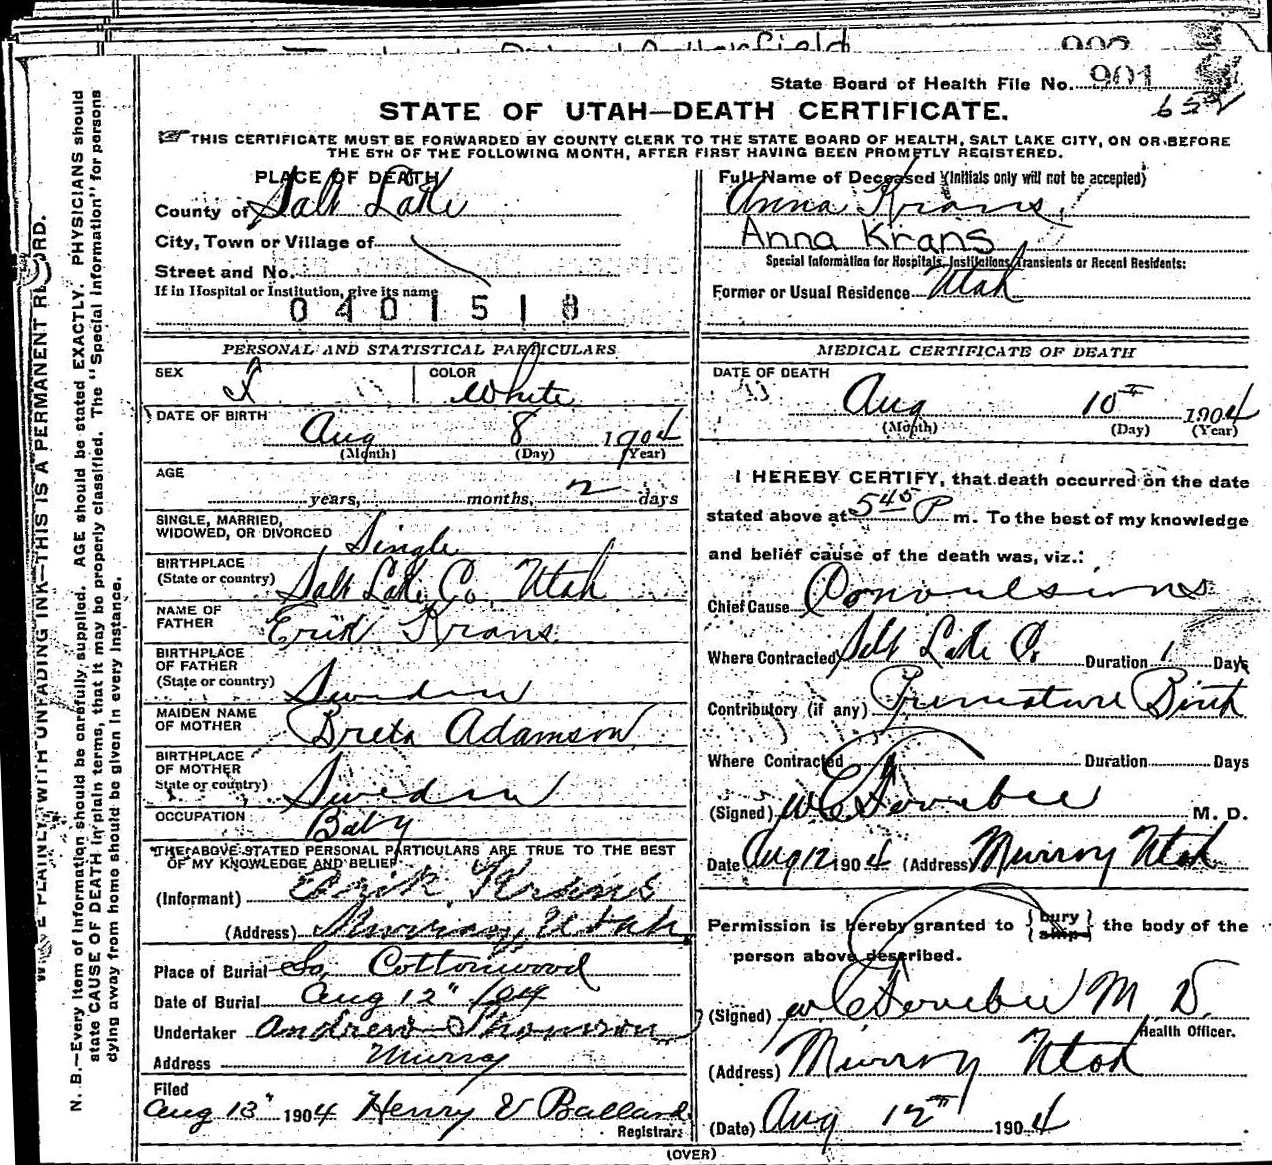 State Board of Health File No. 901
652
STATE OF UTAH—DEATH CERTIFICATE.
THIS CERTIFICATE MUST BE FORWARDED BY COUNTY CLERK TO THE STATE BOARD OF HEALTH, SALT LAKE CITY, ON OR BEFORE
THE 5TH OF THE FOLLOWING MONTH, AFTER FIRST HAVING BEEN PROMPTLY REGISTERED.
PLACE OF DEATH
County of Salt Lake
City, Town or Village of
Street and No.
If in Hospital or Institution, give its name
0401518
Full Name of Deceased (Initials only will not be accepted)
Anna Krans
Anna Krans
Special Information for Hospitals, Institutions, Transients or Recent Residents:
Former or Usual Residence Utah
PERSONAL AND STATISTICAL PARTICULARS
SEX F COLOR White
DATE OF BIRTH
Aug 8 1904
(Month) (Day) (Year)
AGE
years, months, 2 days
SINGLE, MARRIED,
WIDOWED, OR DIVORCED Single
BIRTHPLACE
(State or country) Salt Lake Co. Utah
NAME OF
FATHER Erik Krans
BIRTHPLACE
OF FATHER
(State or country) Sweden
MAIDEN NAME
OF MOTHER Breta Adamson
BIRTHPLACE
OF MOTHER
State or country) Sweden
OCCUPATION Baby
THE ABOVE STATED PERSONAL PARTICULARS ARE TRUE TO THE BEST
OF MY KNOWLEDGE AND BELIEF
(Informant) Erik Krans
(Address) Murray, Utah
Place of Burial So. Cottonwood
Date of Burial Aug 12" 1904
Undertaker Andrew Thomson
Address Murray
Filed
Aug 13" 1904 Henry V Ballard
Registrar
MEDICAL CERTIFICATE OF DEATH
DATE OF DEATH
Aug 10th 1904
(Month) (Day) (Year)
I HEREBY CERTIFY, that death occurred on the date
stated above at 5 45 P m. To the best of my knowledge
and belief cause of the death was, viz.:
Chief Cause Convulsions
Where Contracted Salt Lake Co. Duration 1 Days
Contributory (if any) Premature Birth
Where Contracted Duration Days
(Signed) M. D.
Date Aug 12 1904 (Address) Murray Utah
Permission is hereby granted to {bury ship} the body of the
person above described.
(Signed) M D.
Health Officer.
(Address) Murray Utah
(Date) Aug 12th 1904
(OVER)
PLAINLY WITH UNFADING INK—THIS IS A PERMANENT
N. B.—Every item of information should be carefully supplied. AGE should be stated EXACTLY. PHYSICIANS should
state CAUSE OF DEATH in plain terms, that it may be properly classified. The "Special Information" for persons
dying away from home should be given in every instance.